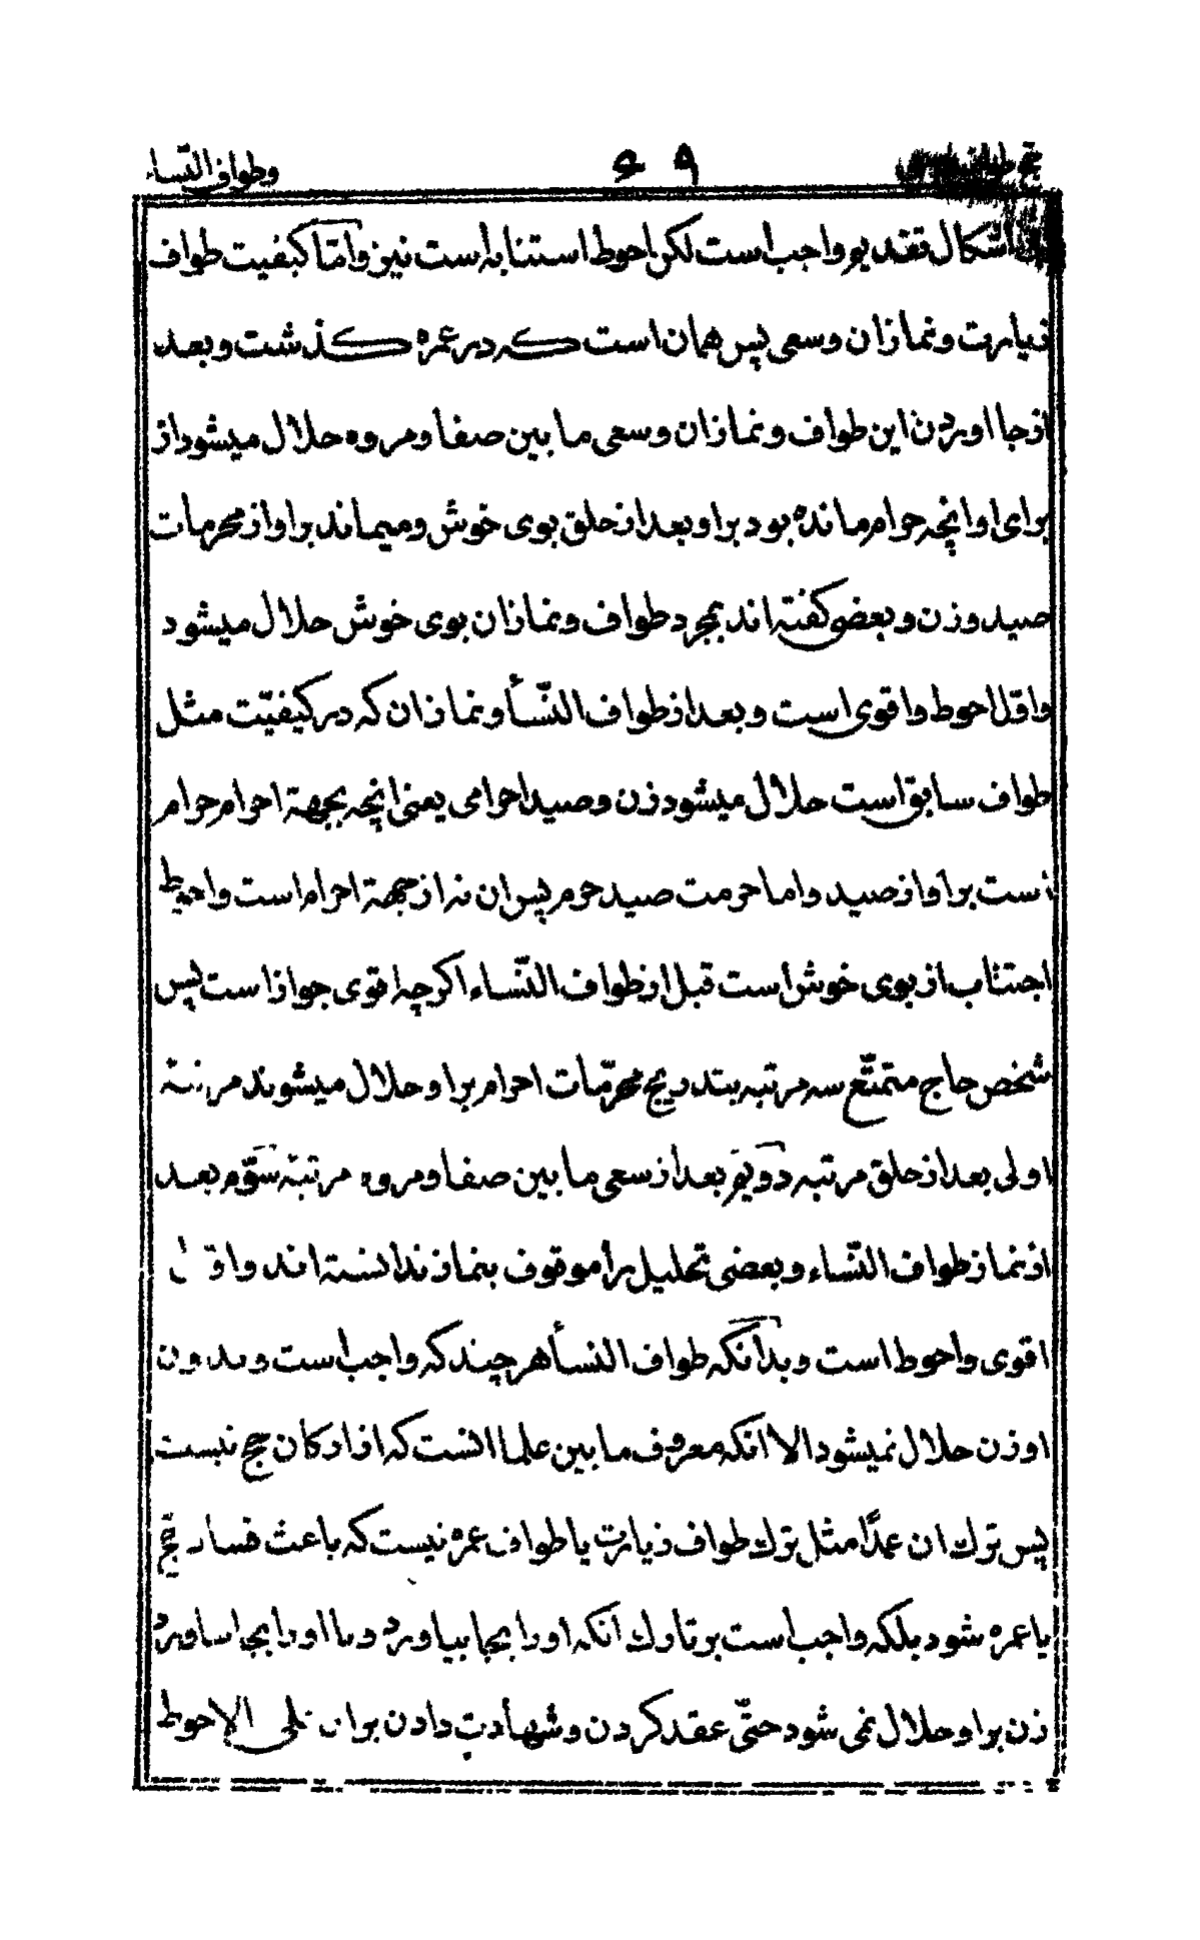 حج طواف ۶۹ وطواف النّساء
اشکال تقدیم واجب است لکن احوط استنابه است نیز وامّا کیفیت طواف
زیارت ونماز ان وسعی پس همان است که در عمره کذشت وبعد
از جا اوردن این طواف ونماز ان وسعی ما بین صفا ومروه حلال میشود از
برای او انچه حرام مانده بود براو بعد از حلق بوی خوش ومیماند براو از محرمات
صید وزن وبعضی کفته اند بمجرد طواف ونماز ان بوی خوش حلال میشود
واوّل احوط واقوی است وبعد از طواف النّسأ ونماز ان که در کیفیّت مثل
طواف سابق است حلال میشود زن وصید احرامی یعنی انچه بجهة احرام حرام
است براو از صید واما حرمت صید حرم پس ان نه از جهة احرام است واحوط
اجتناب از بوی خوش است قبل از طواف النّساء اکرچه اقوی جواز است پس
شخص حاج متمتّع سه مرتبه بتدریج محرّمات احرام براو حلال میشوند مرتبه
اولی بعد از حلق مرتبه دویّم بعد از سعی ما بین صفا ومروه مرتبه سوّم بعد
از نماز طواف النّساء وبعضی تحلیل را موقوف بنماز ندانسته اند واوّل
اقوی واحوط است وبدانکه طواف النسأ هر چند که واجب است وبدون
او زن حلال نمیشود الا انکه معروف ما بین علما انست که از ارکان حج نیست
پس ترك ان عمدًا مثل ترك طواف زیارت یا طواف عمره نیست که باعث فساد حج
یا عمره شود بلکه واجب است بر تارك انکه او را بجا بیاورد وتا او را بجا نیاورد
زن براو حلال نمی شود حتّی عقد کردن وشهادت دادن بران علی الاحوط